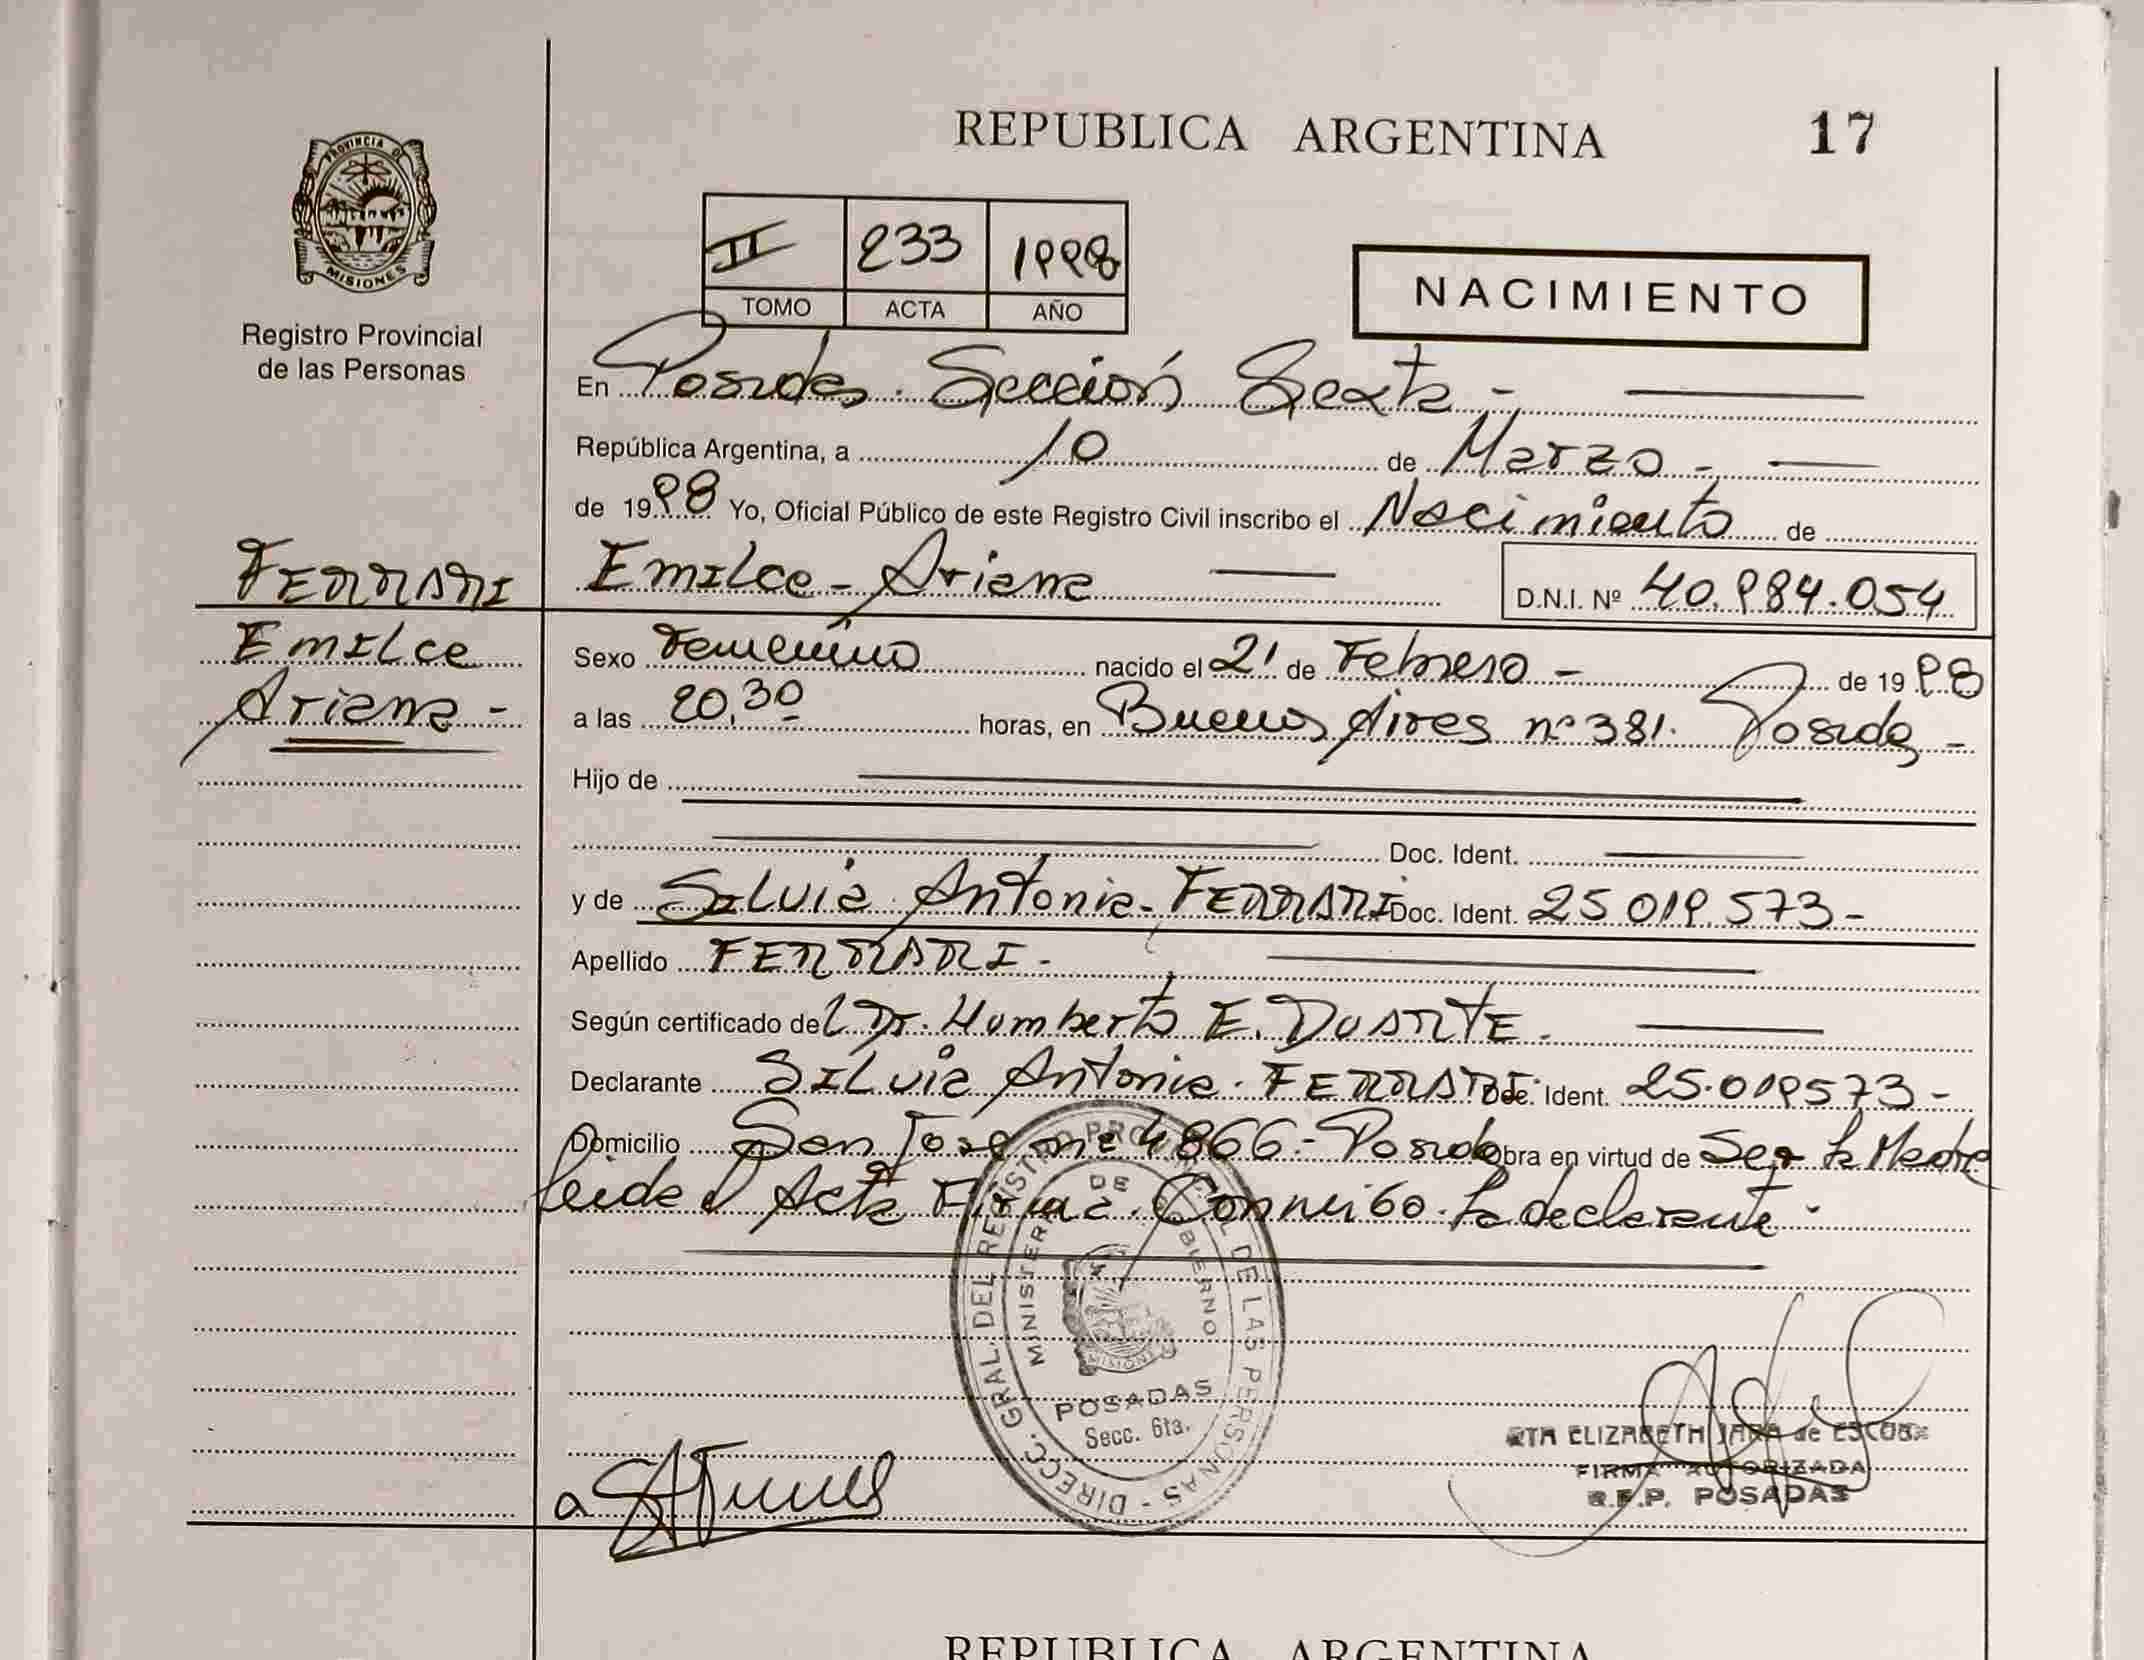 REPUBLICA ARGENTINA 17
PROVINCIA DE
MISIONES
Registro Provincial
de las Personas
II 233 1998
TOMO ACTA AÑO
NACIMIENTO
En Posadas. Sección Sexta -
República Argentina, a 10 de Marzo -
de 1998 Yo, Oficial Público de este Registro Civil inscribo el Nacimiento de
FERRARI
Emilce
Ariana -
Emilce - Ariana D.N.I. Nº 40.984.054
Sexo Femenino nacido el 21 de Febrero - de 1998
a las 20,30 horas, en Buenos Aires nº 381. Posadas -
Hijo de
Doc. Ident.
y de Silvia Antonia - FERRARI Doc. Ident. 25 019 573 -
Apellido FERRARI -
Según certificado del Dr. Humberto E. DUARTE.
Declarante Silvia Antonia. FERRARI Doc. Ident. 25.019573 -
Domicilio San José 4866 - Posadas Obra en virtud de Ser la Madre
leida el Acta Firma Conmigo la declarante -
DIRECC. GRAL. DEL REGISTRO PROVINCIAL DE LAS PERSONAS -
MINISTERIO DE GOBIERNO
MISIONES
POSADAS
Secc. 6ta.
ELIZABETH JARA de
FIRMA AUTORIZADA
R.P.P. POSADAS
REPUBLICA ARGENTINA